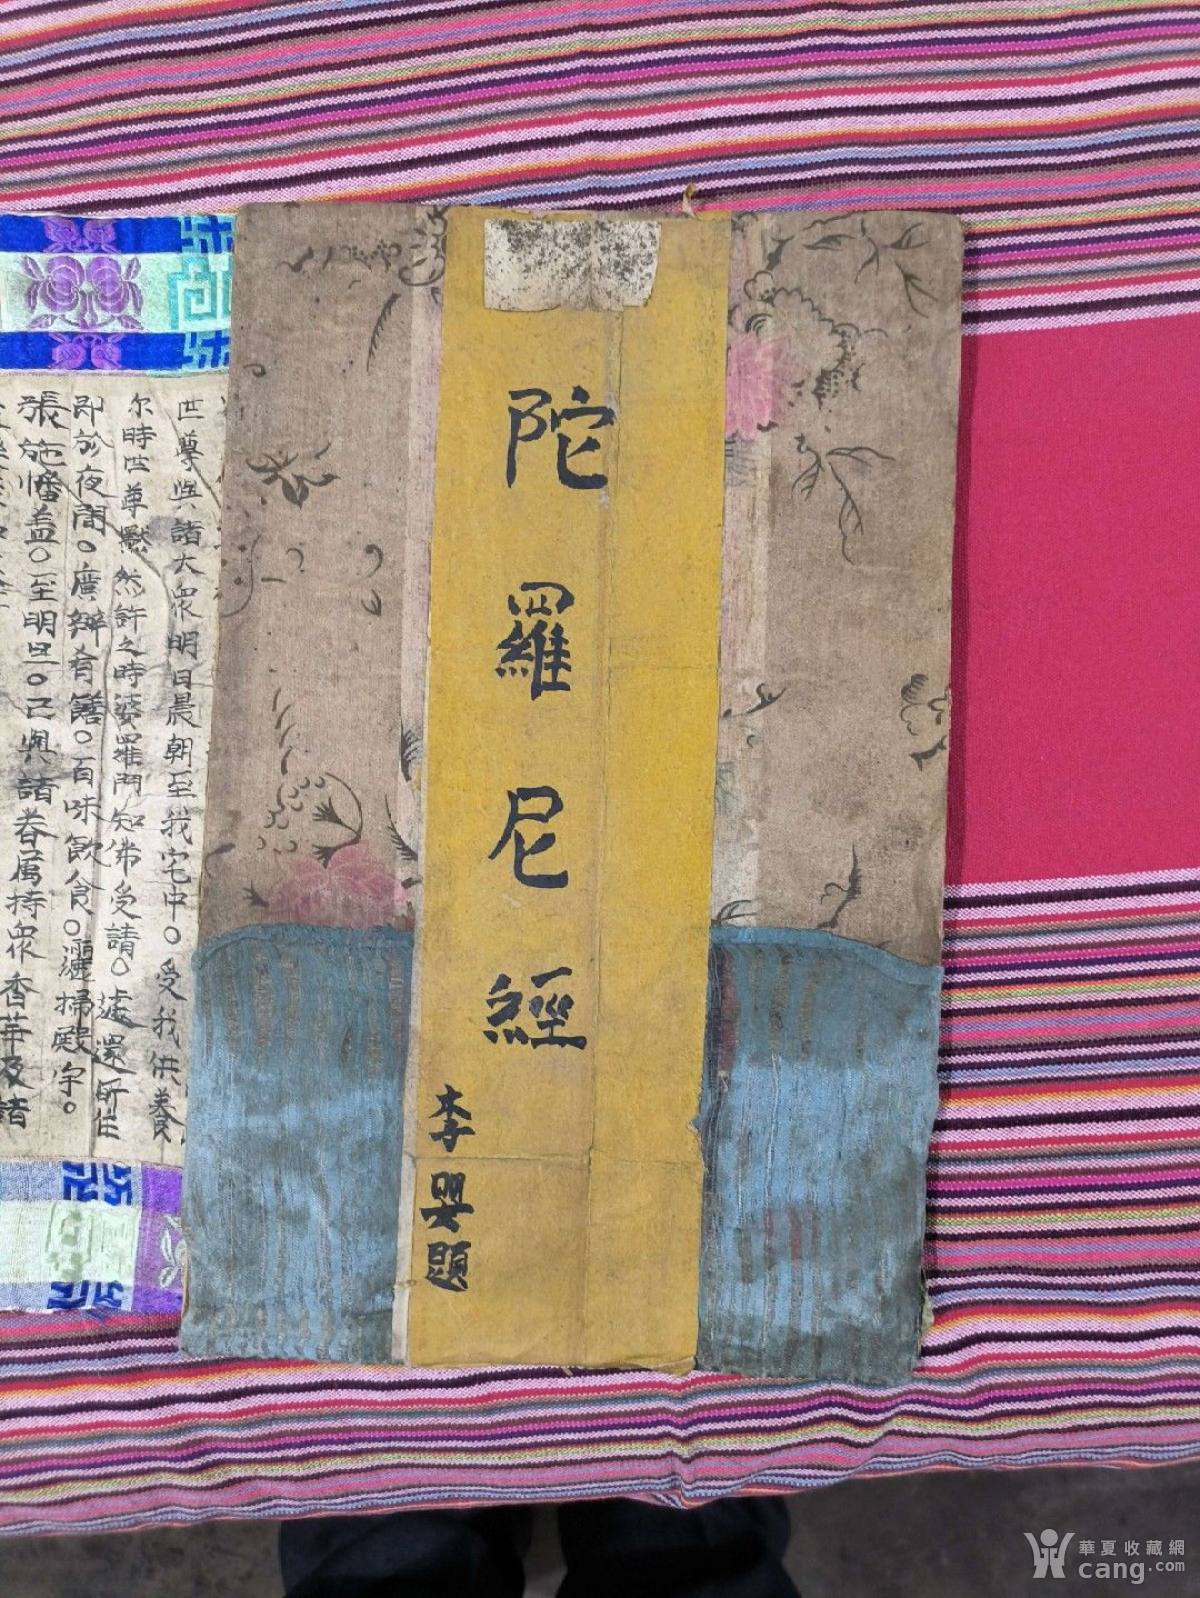 陀羅尼經
李婴題
世尊與諸大衆明日晨朝至我宅中。受我供養
尔時世尊默然許之時婆羅門知佛受請。遽還所住
即於夜間。廣辦肴饍。百味飲食。灑掃殿宇。
張施幡盖。至明旦。已與諸眷属持衆香華及諸
華夏收藏網
cang.com